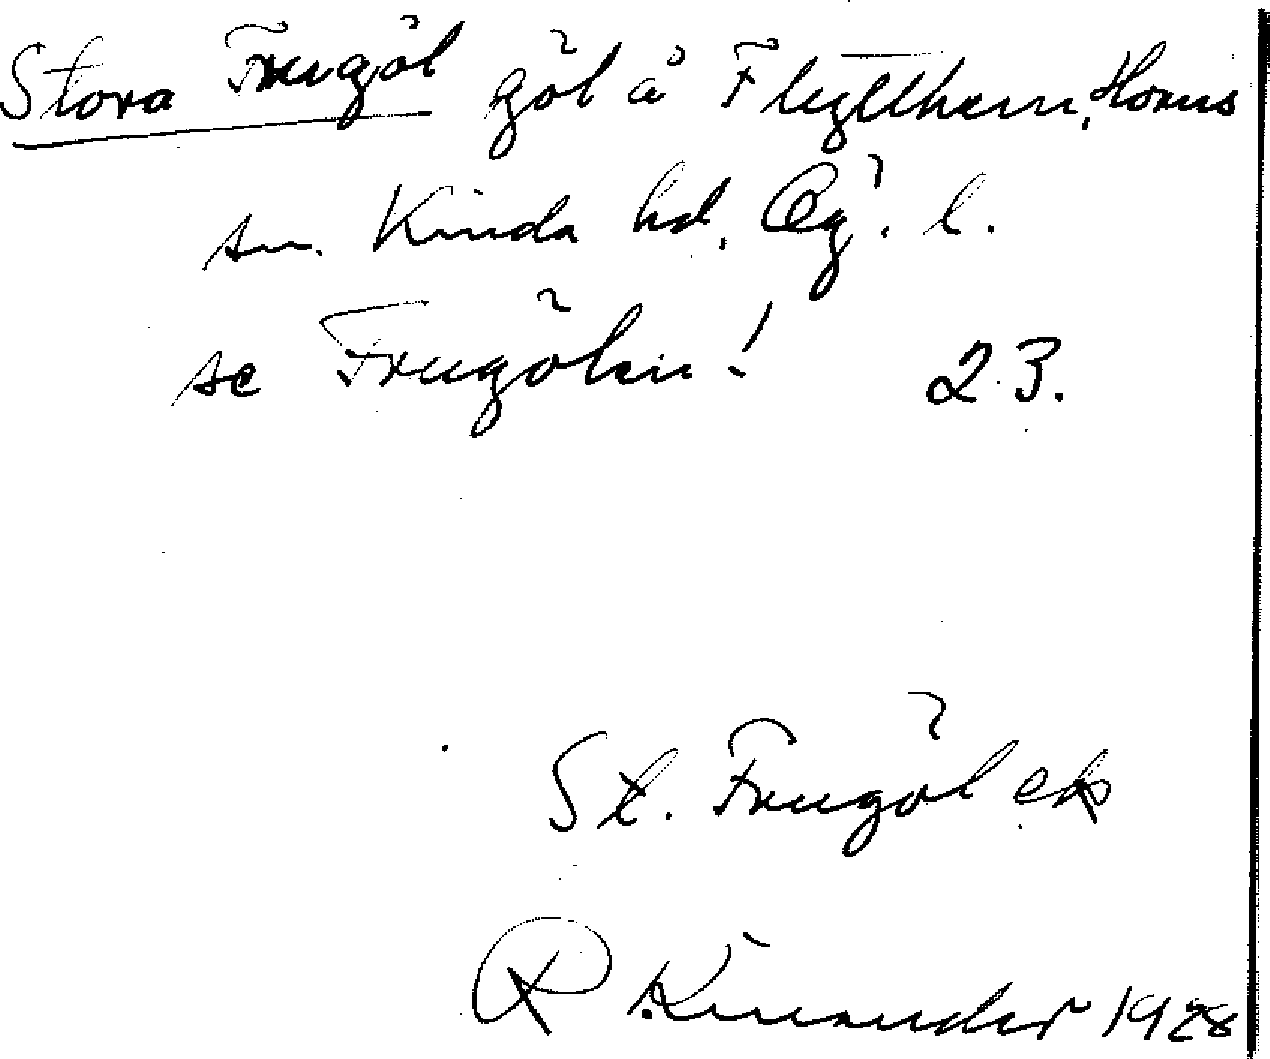 Stora Frugöl göl å Flygethem, Horns
sn. Kinda hd. Ög. l.
se Frugölen! 23.
St. Frugöl ek
R Kinander 1928